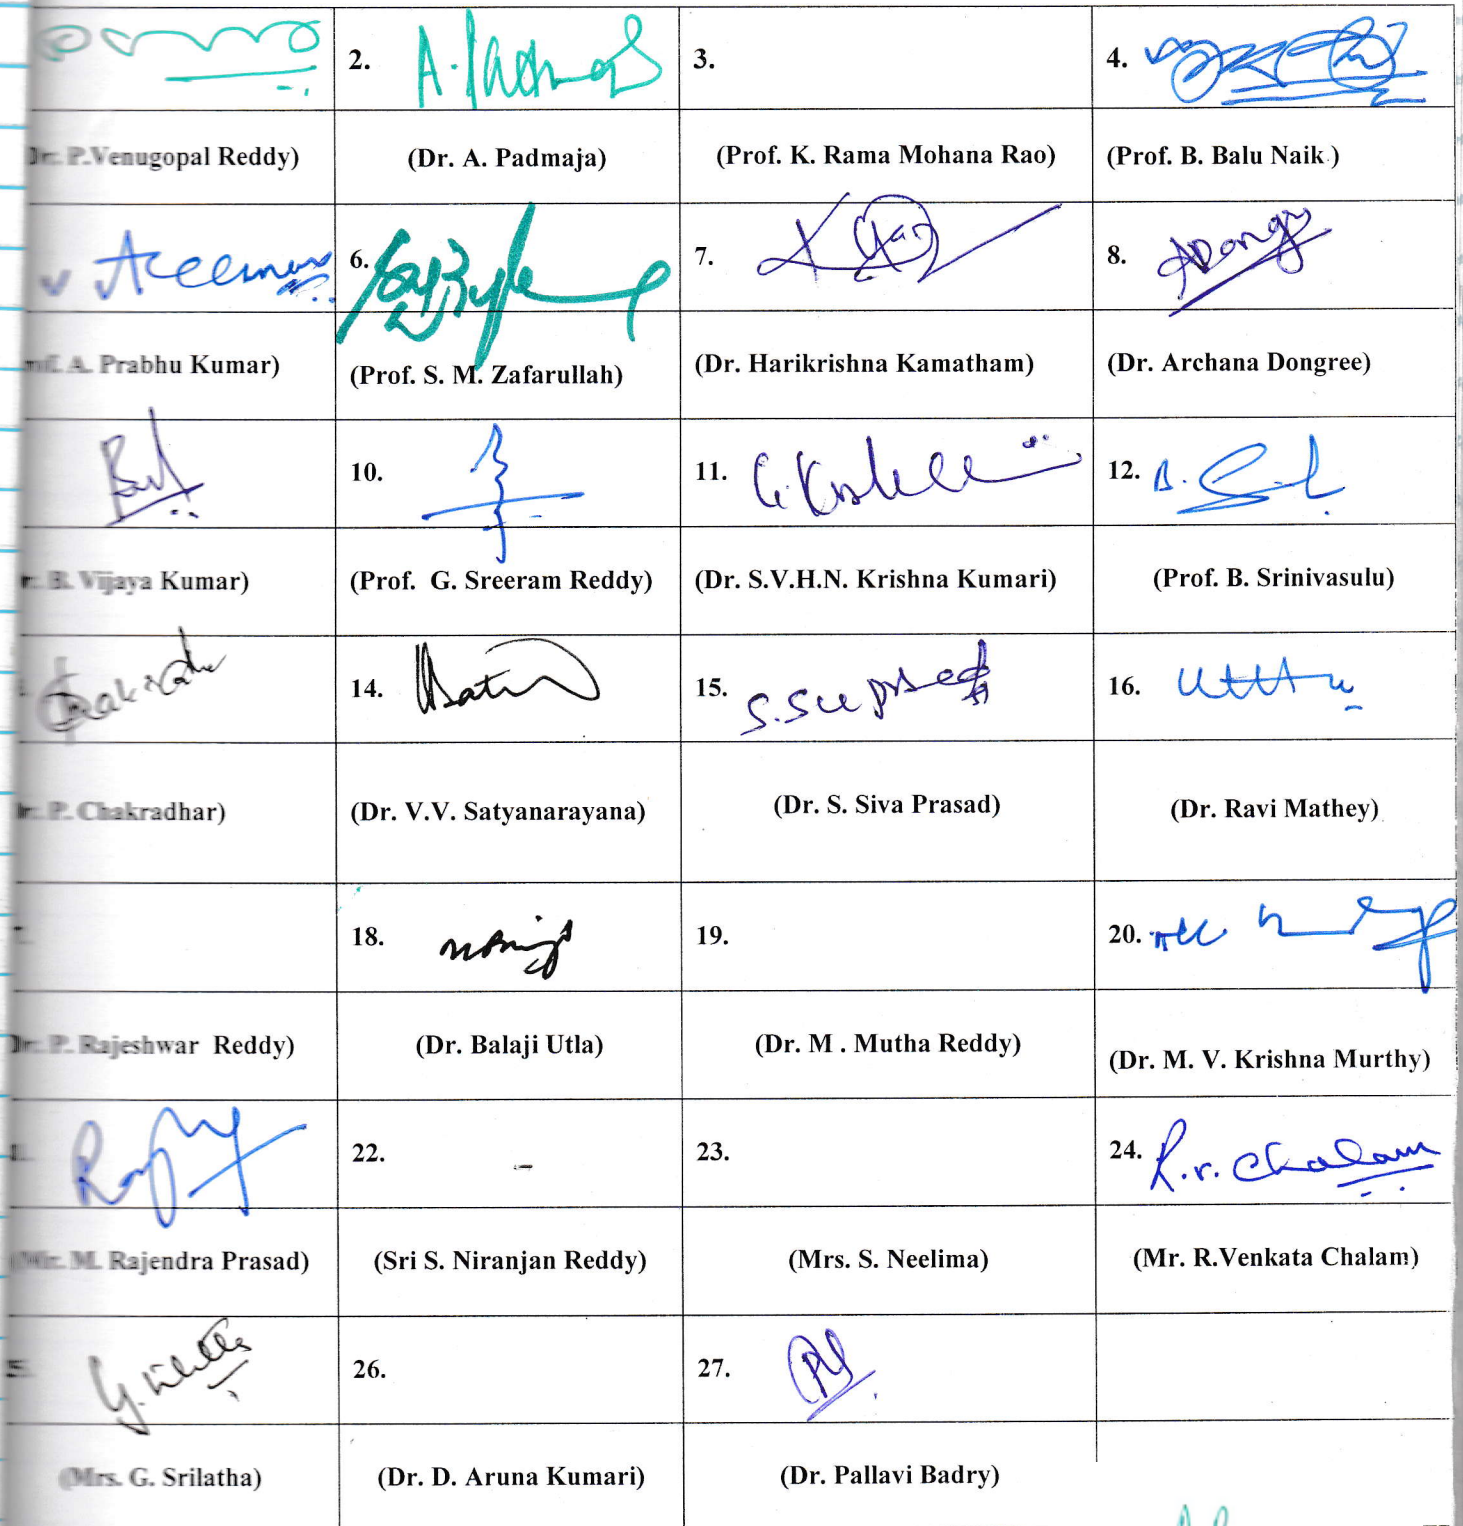 2. A. Padmaja 3. 4.
Dr. P.Venugopal Reddy) (Dr. A. Padmaja) (Prof. K. Rama Mohana Rao) (Prof. B. Balu Naik )
6. 7. 8. ADongr
A. Prabhu Kumar) (Prof. S. M. Zafarullah) (Dr. Harikrishna Kamatham) (Dr. Archana Dongree)
10. 11. 12. B.
B. Vijaya Kumar) (Prof. G. Sreeram Reddy) (Dr. S.V.H.N. Krishna Kumari) (Prof. B. Srinivasulu)
14. 15. 16.
P. Chakradhar) (Dr. V.V. Satyanarayana) (Dr. S. Siva Prasad) (Dr. Ravi Mathey)
18. 19. 20.
Dr. P. Rajeshwar Reddy) (Dr. Balaji Utla) (Dr. M . Mutha Reddy) (Dr. M. V. Krishna Murthy)
22. – 23. 24. R.v. Chalam
(Mr. M. Rajendra Prasad) (Sri S. Niranjan Reddy) (Mrs. S. Neelima) (Mr. R.Venkata Chalam)
26. 27.
(Mrs. G. Srilatha) (Dr. D. Aruna Kumari) (Dr. Pallavi Badry)